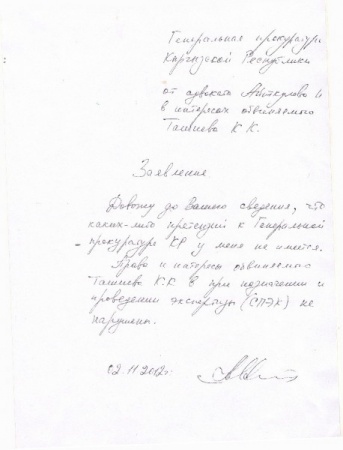 Генеральная прокуратура
Кыргызской Республики
от адвоката
в интересах обвиняемого
Ташиева К.К.
Заявление
Довожу до Вашего сведения, что
каких-либо претензий к Генеральной
прокуратуре КР у меня не имеется.
Права и интересы обвиняемого
Ташиева К.К. при назначении и
проведении экспертизы (СПЭК) не
нарушены.
02.11.2012г.